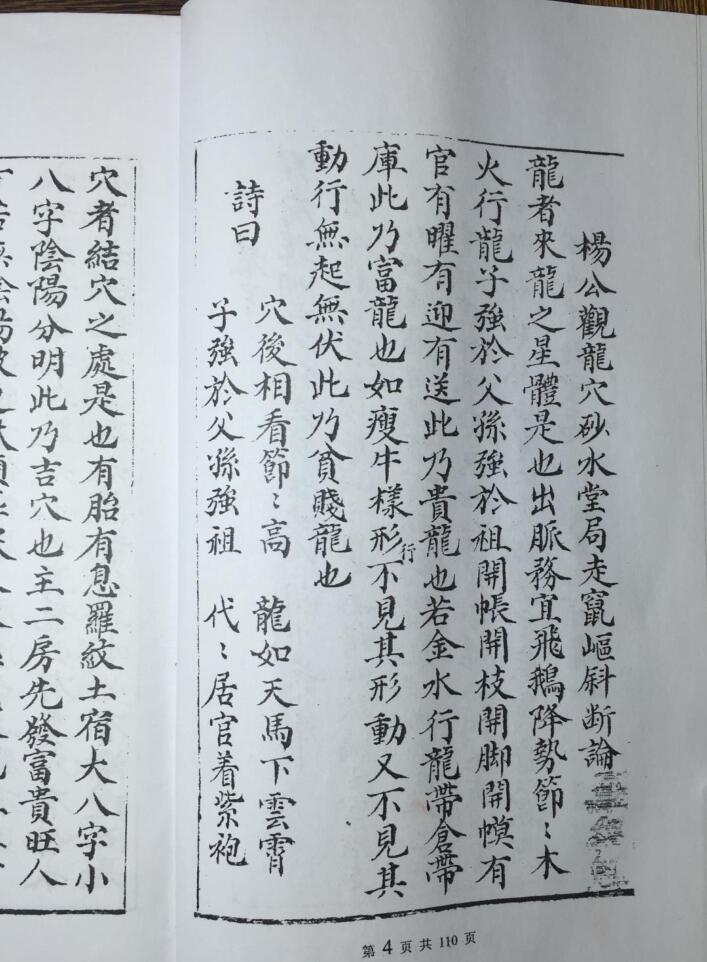 楊公觀龍穴砂水堂局走竄嶇斜断論
龍者來龍之星體是也出脈務宜飛鵝降勢節〻木
火行龍子強於父孫強於祖開帳開枝開脚開幙有
官有曜有迎有送此乃貴龍也若金水行龍帶倉帶
庫此乃富龍也如瘦牛樣形行不見其形動又不見其
動行無起無伏此乃貧賤龍也
詩曰
穴後相看節〻高 龍如天馬下雲霄
子強於父孫強祖 代〻居官着紫袍
穴者結穴之處是也有胎有息羅紋土宿大八字小
八字陰陽分明此乃吉穴也主二房先發富貴旺人
第 4 页 共 110 页